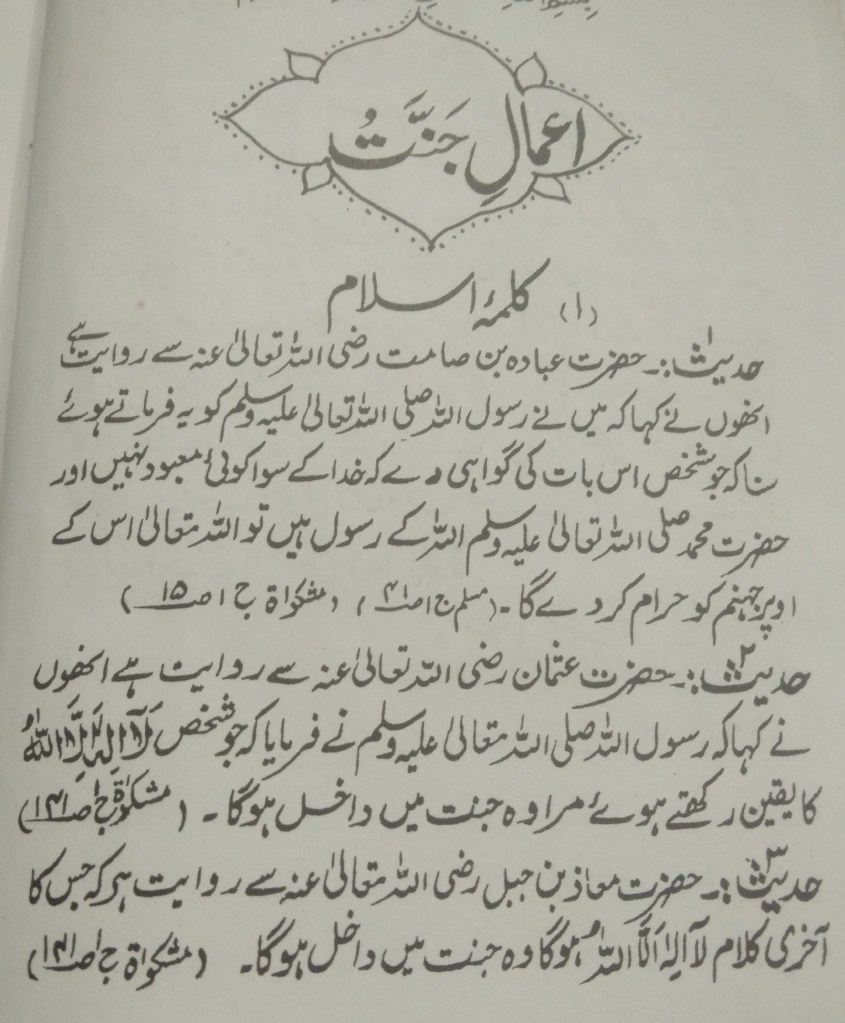 اعمالِ جنّتُ
(۱) کلمۂ اسلام
حدیث۱:۔ حضرت عبادہ بن صامت رضی اللہ تعالیٰ عنہ سے روایت ہے
انھوں نے کہا کہ میں نے رسول اللہ صلی اللہ تعالیٰ علیہ وسلم کو یہ فرماتے ہوئے
سنا کہ جو شخص اس بات کی گواہی دے کہ خدا کے سوا کوئی معبود نہیں اور
حضرت محمد صلی اللہ تعالیٰ علیہ وسلم اللہ کے رسول ہیں تو اللہ تعالیٰ اس کے
اوپر جہنم کو حرام کردے گا۔ (مسلم ج۱ ص۴۱) (مشکوٰۃ ج۱ ص۱۵)
حدیث۲:۔ حضرت عثمان رضی اللہ تعالیٰ عنہ سے روایت ہے انھوں
نے کہا کہ رسول اللہ صلی اللہ تعالیٰ علیہ وسلم نے فرمایا کہ جو شخص لَآ اِلٰہَ اِلَّا اللّٰہُ
کا یقین رکھتے ہوئے مرا وہ جنت میں داخل ہوگا۔ (مشکوٰۃ ج۱ ص۱۴۱)
حدیث۳:۔ حضرت معاذ بن جبل رضی اللہ تعالیٰ عنہ سے روایت ہر کہ جس کا
آخری کلام لَآ اِلٰہَ اِلَّا اللّٰہُ ہوگا وہ جنت میں داخل ہوگا۔ (مشکوٰۃ ج۱ ص۱۴۱)